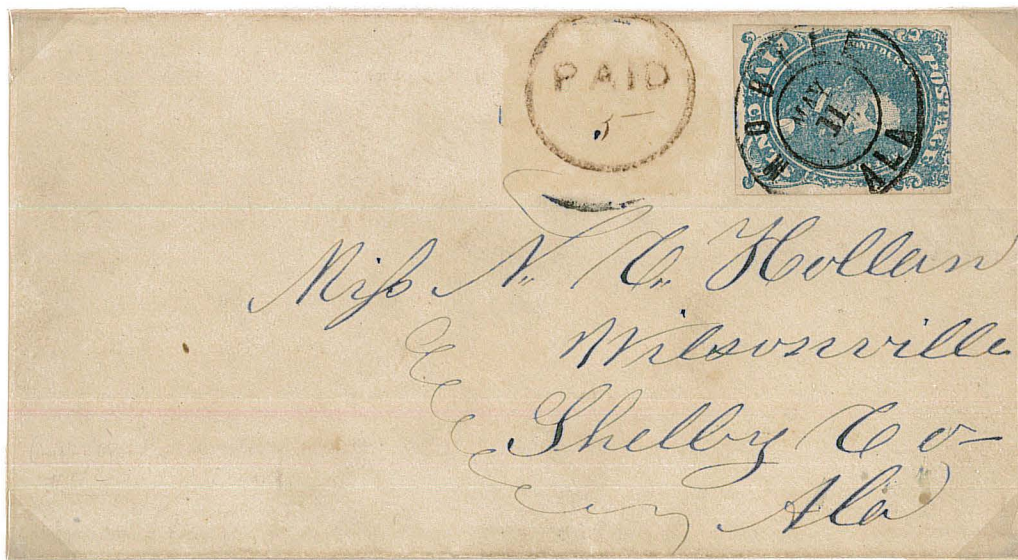 PAID
5
MOBILE ALA
MAY
11
POSTAGE
Miss N. C. Hollan
Wilsonville
Shelby Co-
Ala